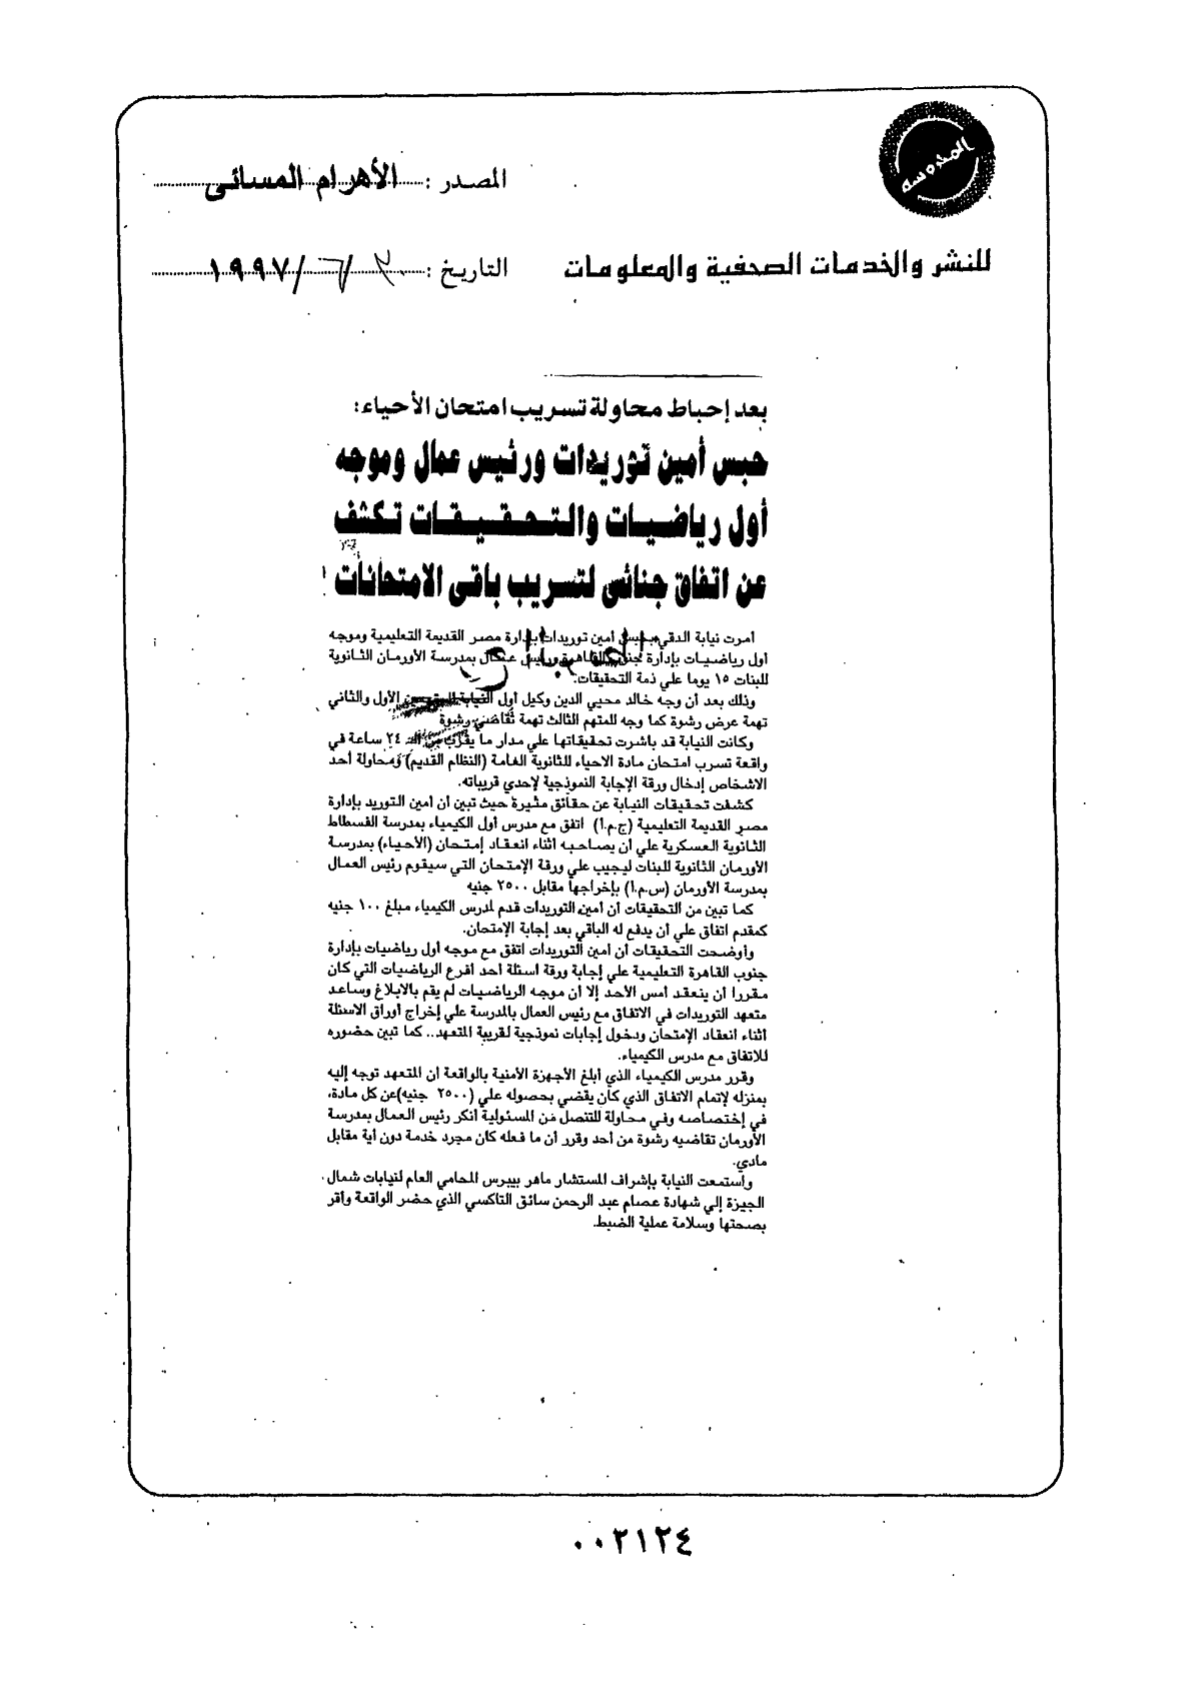 المحروسة
المصدر : الأهرام المسائى
للنشر والخدمات الصحفية والمعلومات
التاريخ : ٢٠/٦/١٩٩٧
بعد إحباط محاولة تسريب امتحان الأحياء:
حبس أمين توريدات ورئيس عمال وموجه
أول رياضيات والتحقيقات تكشف
عن اتفاق جنائى لتسريب باقى الامتحانات !
أمرت نيابة الدقي بحبس أمين توريدات بإدارة مصر القديمة التعليمية وموجه
أول رياضيات بإدارة جنوب القاهرة ورئيس عمال بمدرسة الأورمان الثانوية
للبنات ١٥ يوما علي ذمة التحقيقات.
وذلك بعد أن وجه خالد محيي الدين وكيل أول النيابة للمتهمين الأول والثاني
تهمة عرض رشوة كما وجه للمتهم الثالث تهمة تقاضي رشوة
وكانت النيابة قد باشرت تحقيقاتها علي مدار ما يقرب من الـ ٢٤ ساعة في
واقعة تسرب امتحان مادة الاحياء للثانوية العامة (النظام القديم) ومحاولة أحد
الاشخاص إدخال ورقة الإجابة النموذجية لإحدي قريباته.
كشفت تحقيقات النيابة عن حقائق مثيرة حيث تبين أن أمين التوريد بإدارة
مصر القديمة التعليمية (ج.م.أ) اتفق مع مدرس أول الكيمياء بمدرسة الفسطاط
الثانوية العسكرية علي أن يصاحبه أثناء انعقاد إمتحان (الأحياء) بمدرسة
الأورمان الثانوية للبنات ليجيب علي ورقة الإمتحان التي سيقوم رئيس العمال
بمدرسة الأورمان (س.م.أ) بإخراجها مقابل ٢٥٠٠ جنيه
كما تبين من التحقيقات أن أمين التوريدات قدم لمدرس الكيمياء مبلغ ١٠٠ جنيه
كمقدم اتفاق علي أن يدفع له الباقي بعد إجابة الإمتحان.
وأوضحت التحقيقات أن أمين التوريدات اتفق مع موجه أول رياضيات بإدارة
جنوب القاهرة التعليمية علي إجابة ورقة اسئلة أحد أفرع الرياضيات التي كان
مقررا أن ينعقد أمس الأحد إلا أن موجه الرياضيات لم يقم بالابلاغ وساعد
متعهد التوريدات في الاتفاق مع رئيس العمال بالمدرسة علي إخراج أوراق الاسئلة
أثناء انعقاد الإمتحان ودخول إجابات نموذجية لقريبة المتعهد.. كما تبين حضوره
للاتفاق مع مدرس الكيمياء.
وقرر مدرس الكيمياء الذي أبلغ الأجهزة الأمنية بالواقعة أن المتعهد توجه إليه
بمنزله لإتمام الاتفاق الذي كان يقضي بحصوله علي (٢٥٠٠ جنيه)عن كل مادة،
في إختصاصه وفي محاولة للتنصل من المسئولية أنكر رئيس العمال بمدرسة
الأورمان تقاضيه رشوة من أحد وقرر أن ما فعله كان مجرد خدمة دون أية مقابل
مادي.
وأستمعت النيابة بإشراف المستشار ماهر بيبرس المحامي العام لنيابات شمال
الجيزة إلي شهادة عصام عبد الرحمن سائق التاكسي الذي حضر الواقعة وأقر
بصحتها وسلامة عملية الضبط.
٠٠٢١٢٤